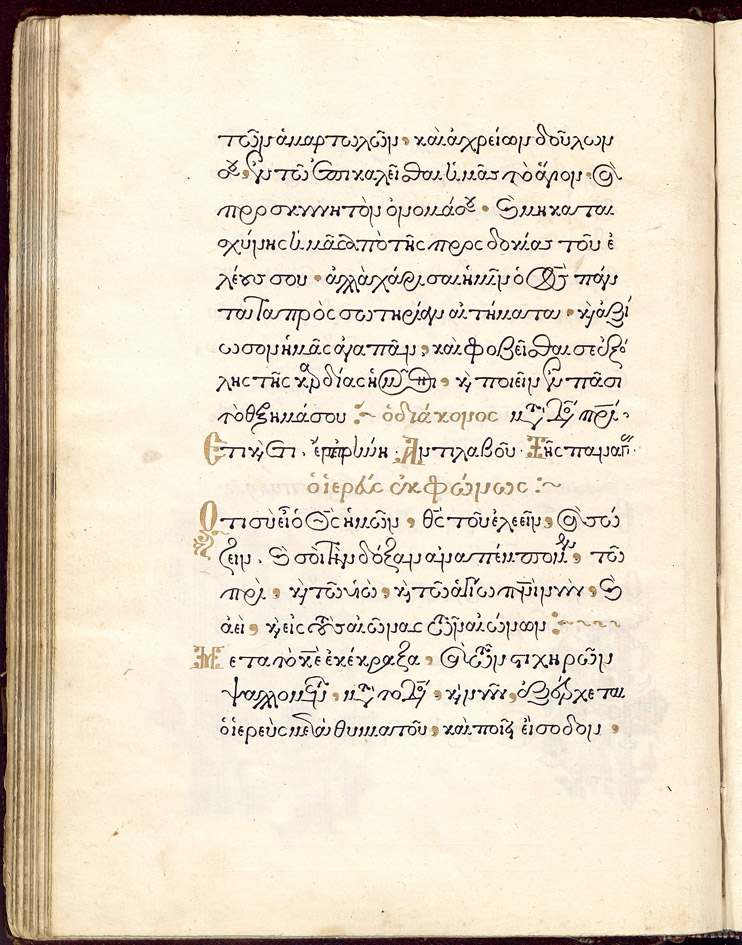 τῶν ἁμαρτωλῶν, καὶ ἀχρείων δούλων
σου, ἐν τῶ ἐπικαλεῖσθαι ἡμᾶς τὸ ἅγιον καὶ
προσκυνητὸν ὄνομά σου· καὶ μὴ καται
σχύνης ἡμᾶς ἀπὸ τῆς προσδοκίας τοῦ ἐ
λέους σου· ἀλλὰ χάρισαι ἡμῖν ὁ Θς πάν
τα τὰ πρὸς σωτηρίαν αἰτήματα· καὶ ἀξί
ωσον ἡμᾶς ἀγαπᾶν, καὶ φοβεῖσθαι σε ἐξ ὅ
λης τῆς καρδίας ἡμῶν, καὶ ποιεῖν ἐν πᾶσι
τὸ θέλημά σου :~ ὁ διάκονος
Ἔτι καὶ ἔτι· ἐν εἰρήνη· Ἀντιλαβοῦ· Τῆς παναγ
ὁ ἱερεὺς ἐκφώνως :~
Ὅτι σὺ εἶ ὁ Θς ἡμῶν, θς τοῦ ἐλεεῖν, καὶ σώ
ζειν· καὶ σοὶ τὴν δόξαν ἀναπέμπομεν, τῶ
πρὶ, καὶ τῶ υἱῶ, καὶ τῶ ἁγίω πνι νῦν, καὶ
ἀεὶ, καὶ εἰς τοὺς αἰῶνας τῶν αἰώνων :~
Μετὰ τὸ κε ἐκέκραξα, καὶ τῶν στιχηρῶν
ψαλλομένων, καὶ νῦν, ἐξέρχεται
ὁ ἱερεὺς μετὰ θυμιατοῦ, καὶ ποιεῖ εἴσοδον,